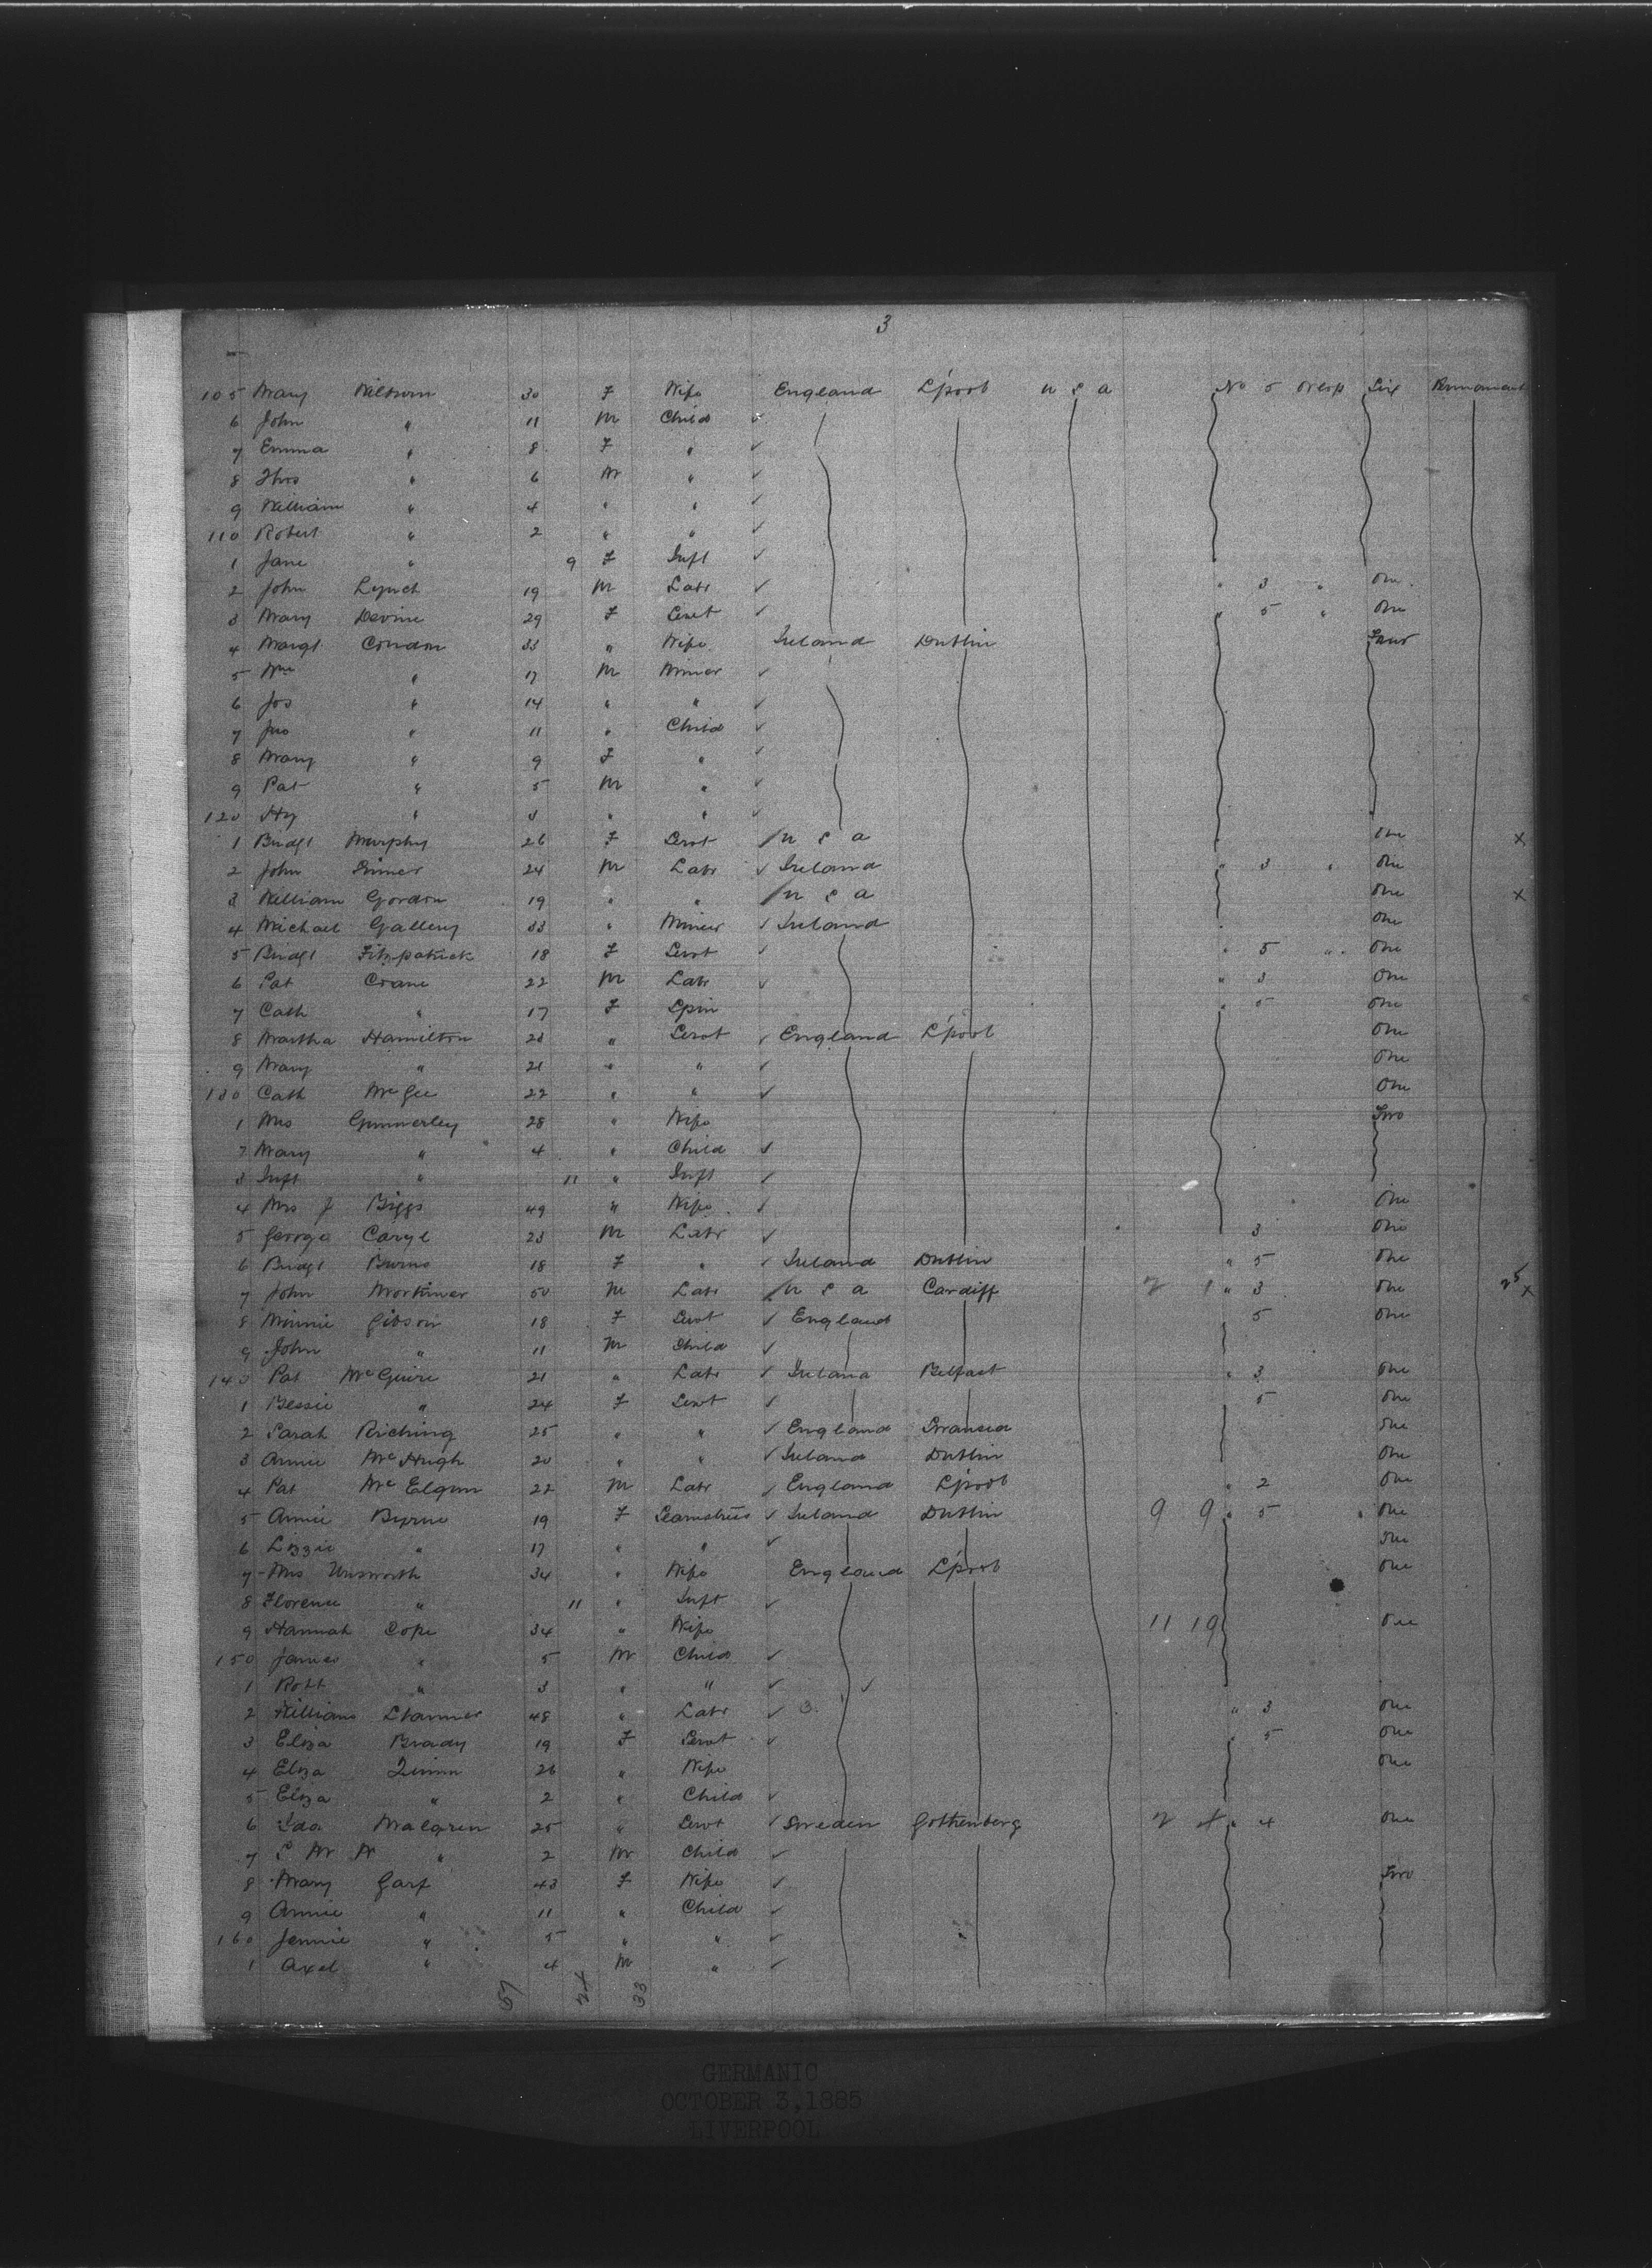 3
105 Mary Wilson 30 F Wife England L'pool U S A No 5 Steep Six Permanent
6 John " 11 M Child
7 Emma " 8 F "
8 Thos " 6 M "
9 William " 4 " "
110 Robert " 2 " "
1 Jane " 9 F Inft
2 John Lynch 19 M Labr " 3 " One
3 Mary Devine 29 F Servt " 5 " One
4 Margt Condon 33 " Wife Ireland Dublin Four
5 Wm " 17 M Miner
6 Jos " 14 " "
7 Jno " 11 " Child
8 Mary " 9 F "
9 Pat " 5 M "
120 Hy " 3 " "
1 Bridgt Murphy 26 F Servt U S A One X
2 John 24 M Labr Ireland " 3 " One
3 William Gordon 19 " " U S A One X
4 Michael Gallery 33 " Miner Ireland One
5 Bridgt Fitzpatrick 18 F Servt " 5 " One
6 Pat Crane 22 M Labr " 3 One
7 Cath " 17 F Spin " 5 One
8 Martha Hamilton 23 " Servt England L'pool One
9 Mary " 21 " " One
130 Cath McGee 22 " " One
1 Mrs Gunnerley 28 " Wife Two
2 Mary " 4 " Child
3 Inft " 11 " Inft
4 Mrs J Biggs 49 " Wife One
5 George Caryl 23 M Labr 3 One
6 Bridgt Burns 18 F " Ireland Dublin " 5 One
7 John Mortimer 50 M Labr U S A Cardiff 2 1 " 3 One 25 X
8 Minnie Gibson 18 F Servt England 5 One
9 John " 11 M Child
140 Pat McGuire 21 " Labr Ireland Belfast " 3 One
1 Bessie " 24 F Servt 5 One
2 Sarah Riching 25 " " England Swansea One
3 Annie McHugh 20 " " Ireland Dublin One
4 Pat McElgun 22 M Labr England L'pool " 2 One
5 Annie Byrne 19 F Seamstress Ireland Dublin 9 9 " 5 " One
6 Lizzie " 17 " " One
7 Mrs Unsworth 34 " Wife England L'pool One
8 Florence " 11 " Inft
9 Hannah Cope 34 " Wife 11 19 One
150 James " 5 M Child
1 Robt " 3 " "
2 William 48 " Labr 3 " 3 One
3 Eliza Brady 19 F Servt " 5 One
4 Eliza Quinn 26 " Wife One
5 Eliza " 2 " Child
6 Ida Malgren 25 " Servt Sweden Gothenberg 2 4 " 4 One
7 " 2 M Child
8 Mary Garf 43 F Wife Two
9 Annie " 11 " Child
160 Jennie " 5 " "
1 Axel " 4 M "
57 24 33
GERMANIC
OCTOBER 3, 1885
LIVERPOOL